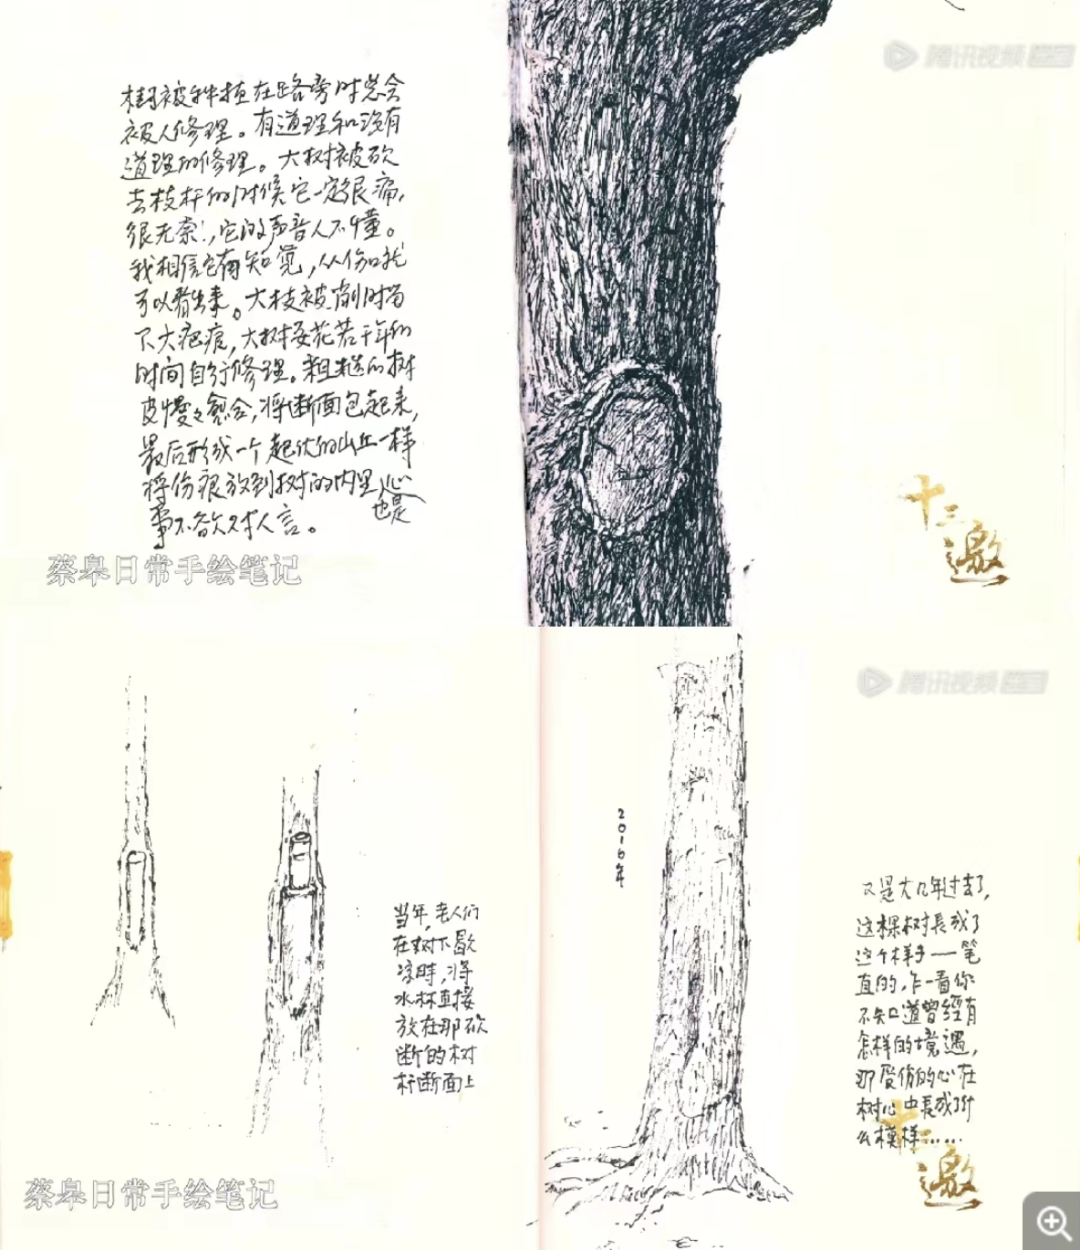 树被种植在路旁时总会
被人修理。有道理和没有
道理的修理。大树被砍
去枝杆的时候它一定很痛,
很无奈!,它的声音人不懂。
我相信它有知觉,从伤口就
可以看出来。大枝被削时留
下大疤痕,大树要花若干年的
时间自行修理。粗糙的树
皮慢慢愈合,将断面包起来,
最后形成一个起伏的山丘一样
将伤痕放到树的内里心
也是
事不欲对人言。
蔡皋日常手绘笔记
腾讯视频
十三邀
腾讯视频
2016年
当年,老人们
在树下歇
凉时,将
水杯直接
放在那砍
断的树
杆断面上
又是大几年过去了,
这棵树長成了
这个样子——笔
直的,乍一看你
不知道曾經有
怎样的境遇,
那受伤的心在
树心中長成什
么模样……
十三邀
蔡皋日常手绘笔记